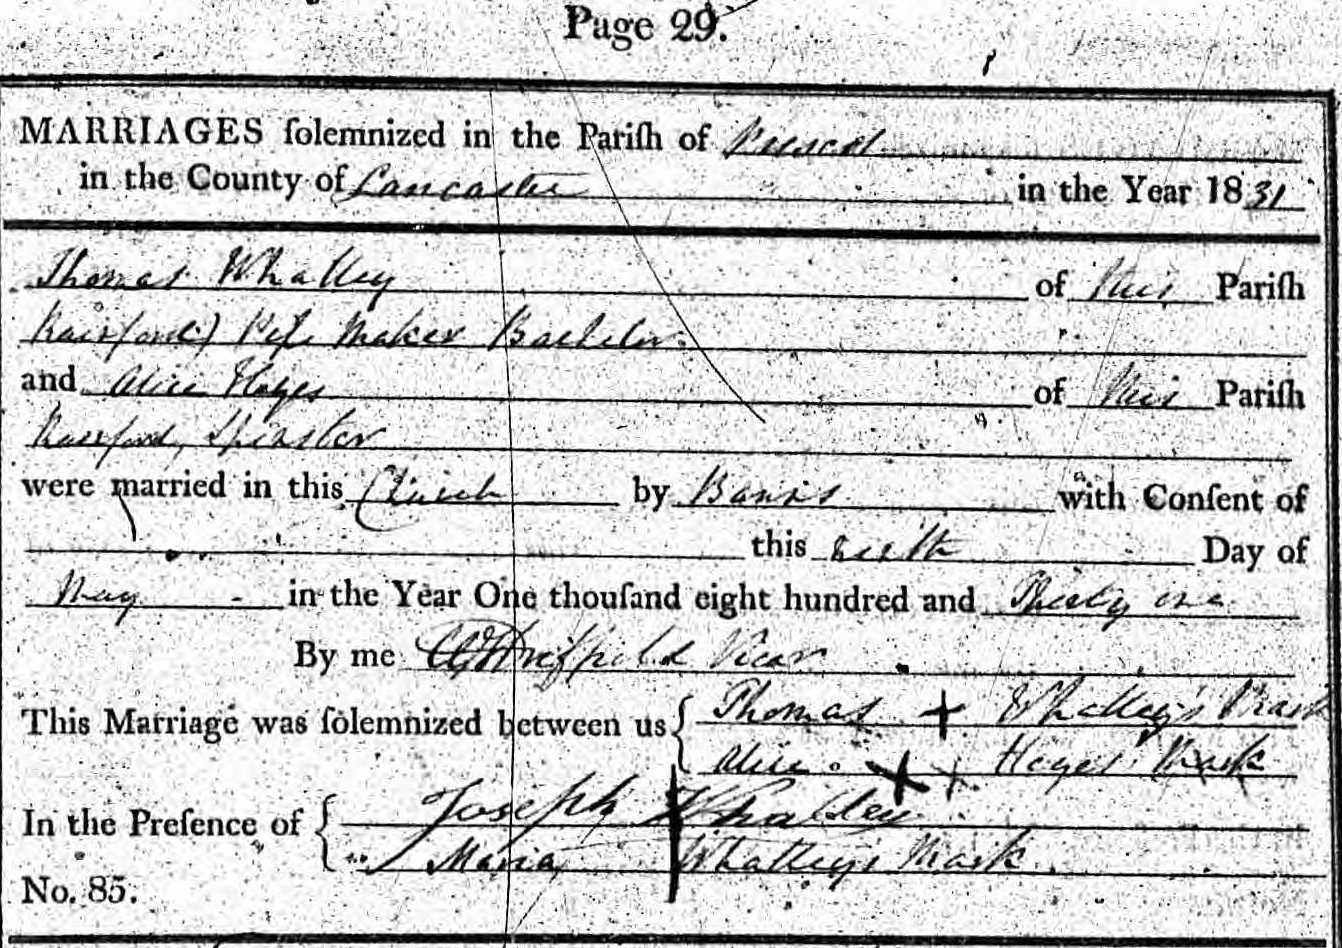 Page 29.
MARRIAGES ſolemnized in the Pariſh of Prescot
in the County of Lancaster in the Year 1831
Thomas Whalley of this Pariſh
Rainford) Pipe Maker Bachelor
and Alice Hayes of this Pariſh
Rainford, Spinster
were married in this Church by Banns with Conſent of
this Day of
May in the Year One thouſand eight hundred and Thirty one
By me Driffield Vicar
This Marriage was ſolemnized between us { Thomas + Whalley's Mark
Alice + Hayes Mark
In the Preſence of { Joseph Whalley
Maria Whalley's Mark
No. 85.